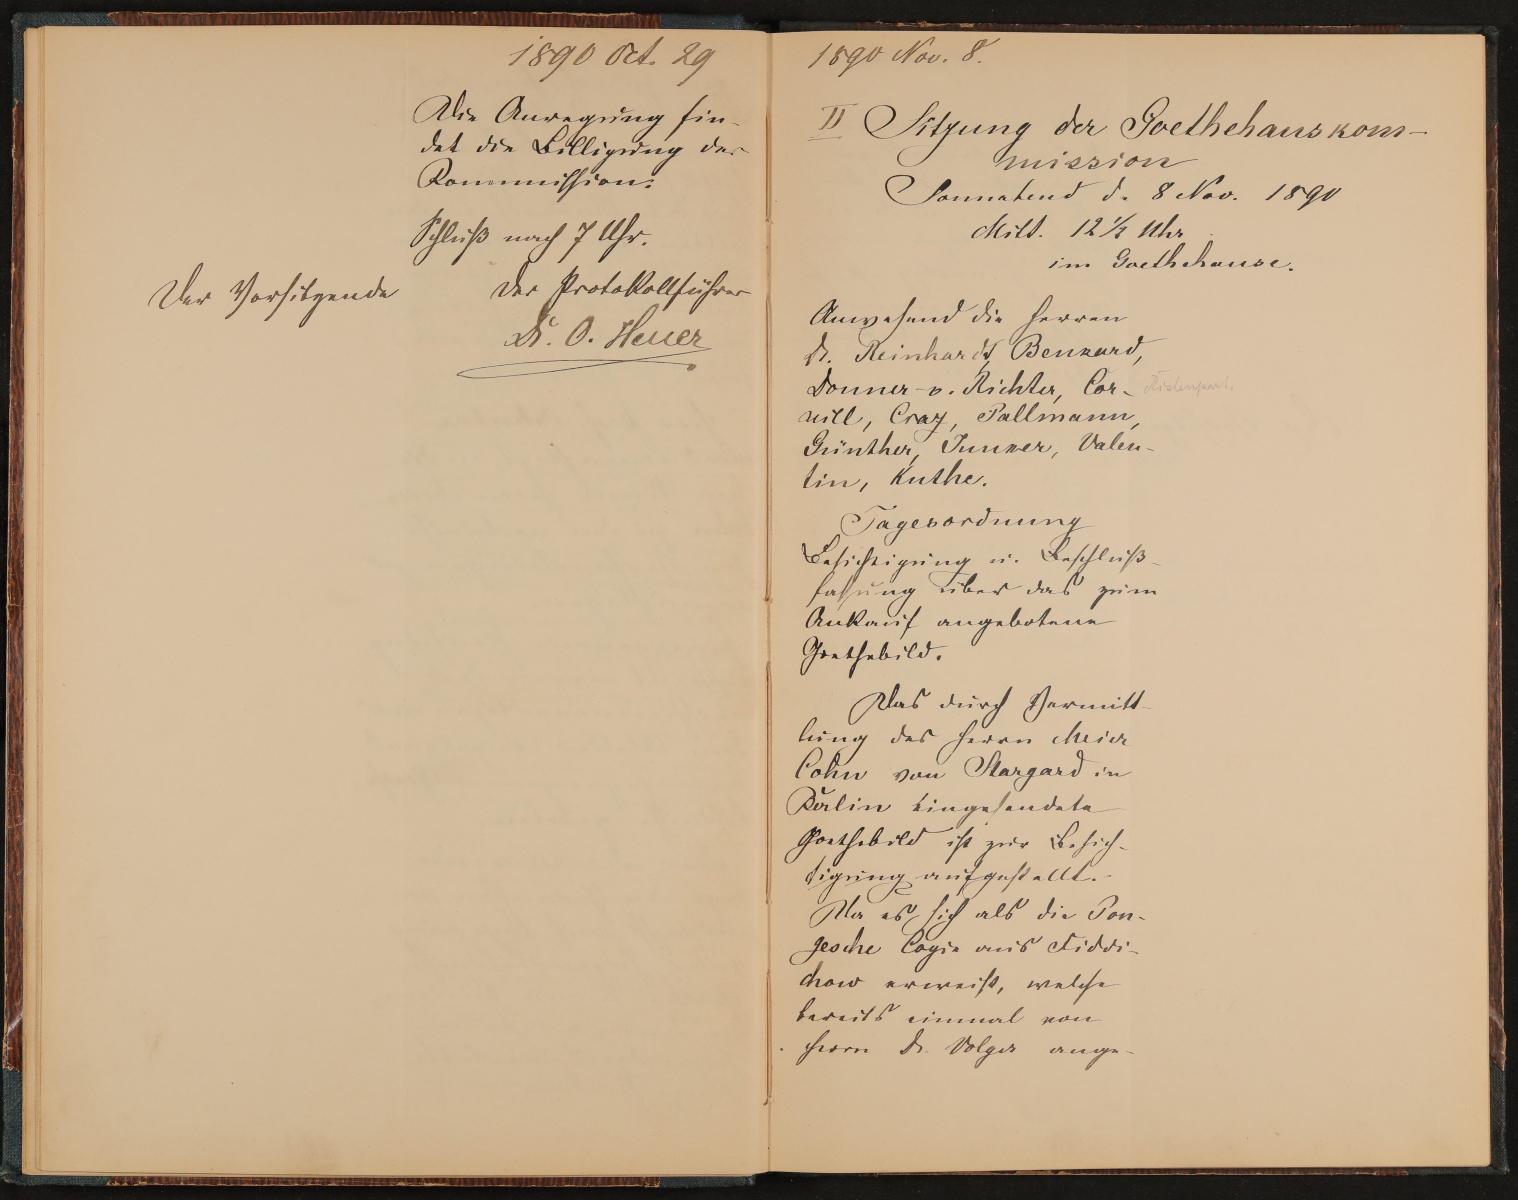 1890 Oct. 29
Die Anregung fin-
det die Billigung der
Kommission.
Schluß nach 7 Uhr.
Der Vorsitzende
Der Protokollführer
Dr. O. Heuer
1890 Nov. 8.
II Sitzung der Goethehauskom-
mission
Sonnabend d. 8 Nov. 1890
Mitt. 12 ½ Uhr
im Goethehause.
Anwesend die Herren
Dr. Reinhardt, Benkard,
Donner-v. Richter, Cor-
nill, Craz, Pallmann,
Günther, Junker, Valen-
tin, Kuthe.
Tagesordnung
Besichtigung u. Beschluß-
fassung über das zum
Ankauf angebotene
Goethebild.
Das durch Vermitt-
lung des Herrn Meier
Cohn von Stargard in
Berlin eingesendete
Goethebild ist zur Besich-
tigung aufgestellt.
Da es sich als die Pon-
gesche Copie aus Fiddi-
chow erweist, welche
bereits einmal von
Herrn Dr. Volger ange-